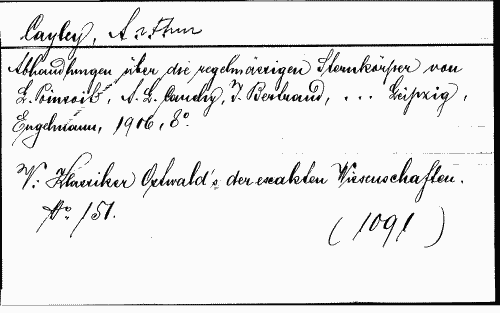 Cayley, Arthur
Abhandlungen über die regelmässigen Sternkörper von
L. Poinsot, A. L. Cauchy, J. Bertrand, ... Leipzig,
Engelmann, 1906, 8º.
V: Klassiker Ostwald's der exakten Wissenschaften.
Nº 151.
(1091)